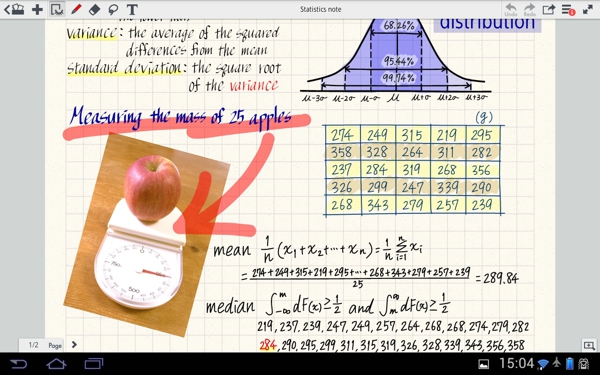 Statistics note
variance: the average of the squared
differences from the mean
standard deviation: the square root
of the variance
distribution
68.26%
95.44%
99.74%
μ-3σ μ-2σ μ-σ μ μ+σ μ+2σ μ+3σ
Measuring the mass of 25 apples
(g)
274 249 315 219 295
358 328 264 311 282
237 284 319 268 356
326 299 247 339 290
268 343 279 257 239
mean 1/n (x1+x2+···+xn) = 1/n Σ i=1 n xi
= 274+249+315+219+295+···+268+343+279+257+239 / 25 = 289.84
median ∫-∞ m dF(x)≥1/2 and ∫m ∞ dF(x)≥1/2
219, 237, 239, 247, 249, 257, 264, 268, 268, 274, 279, 282
284, 290, 295, 299, 311, 315, 319, 326, 328, 339, 343, 356, 358
1/2 Page
15:04